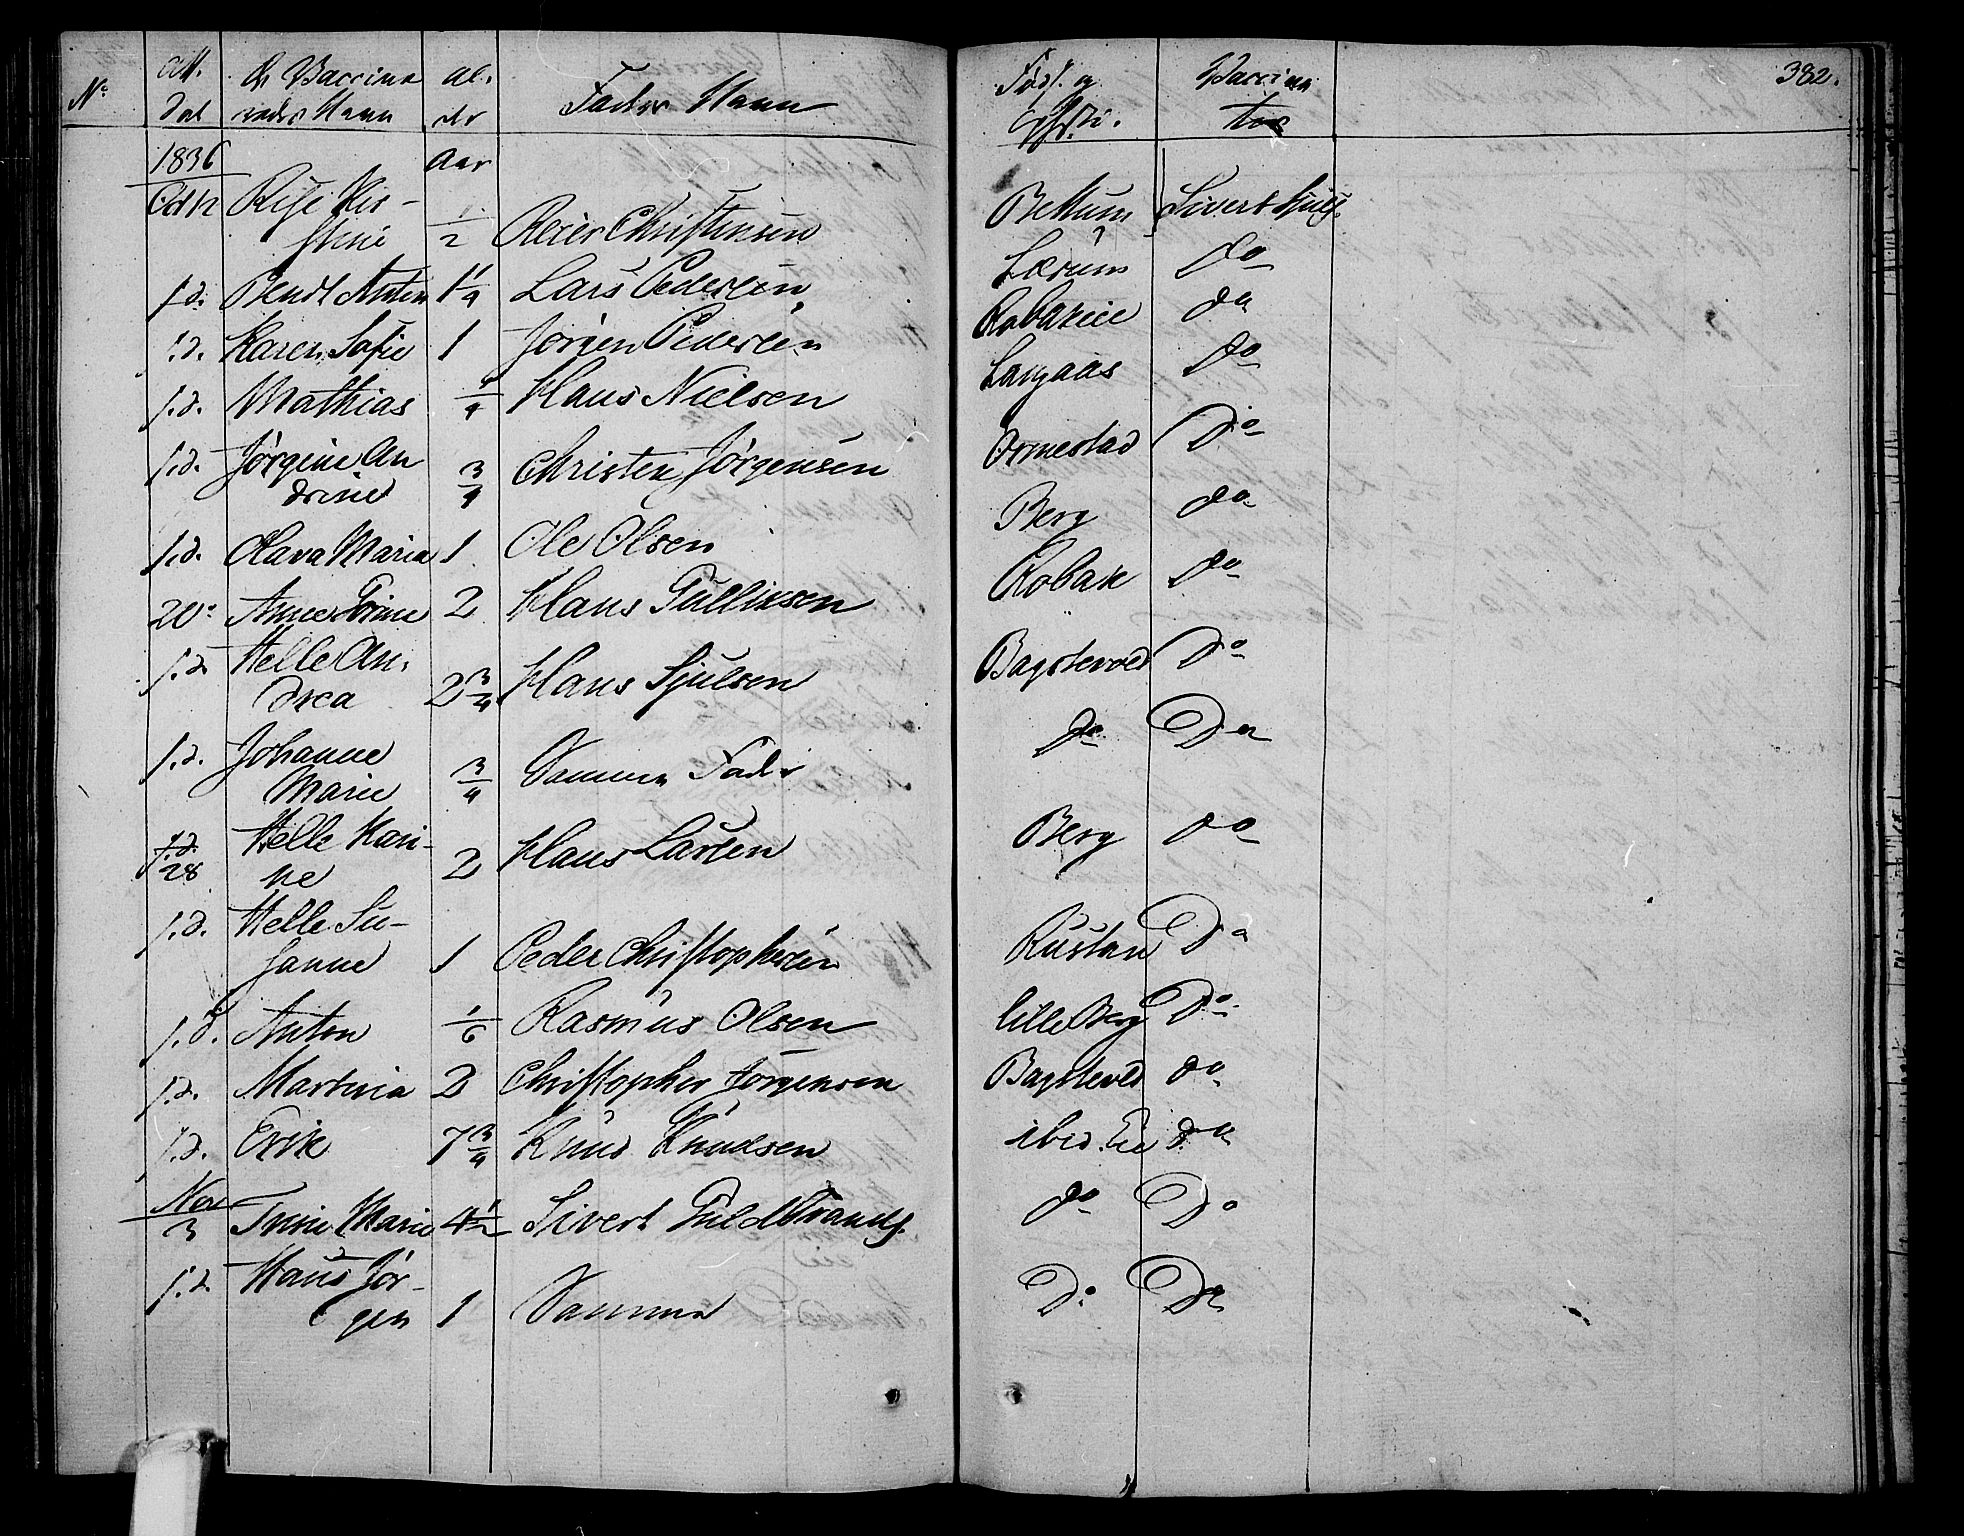 No | Att. Dat | De Vaccine redes Navn | Al. der | Faders Navn | Føds. og | Vaccina tor | 382.
1836 | Aar
Octb | Kirstine | 1/2 | Reier Christensen | Bettum | Sivert
s.d. | Bendt Anton | 1 1/4 | Lars Pedersen | Lærum | do
s.d. | Karen Sofie | 1 | Jørgen Pedersen | do
s.d. | Mathias | 1/4 | Hans Nielsen | Langaas | do
s.d. | Jørgine An
drine | 3/4 | Christen Jørgensen | Ormestad | Do
s.d. | Olava Maria | 1 | Ole Olsen | Berg | do
20. | Anne Trine | 2 | Hans Gulliksen | Robak | do
s.d. | Helle An.
drea | 2 3/4 | Hans Sjulsen | Bagstevold | Do
s.d. | Johanne
Marie | 3/4 | Samme Fader | do | Do
s.d.
28 | Helle Kari-
ne | 2 | Hans Larsen | Berg | do
s.d. | Helle Su-
sanne | 1 | Peder Christophersen | Rustan | Do
s.d. | Anton | 1/6 | Rasmus Olsen | lille Berg | Do
s.d. | Martinia | 2 | Christopher Jørgensen | Bagstevold | do
s.d. | Erik | 7 3/4 | Knud Knudsen | ibid. Eie | do
Nov
3 | Trine Marie | 4 1/2 | Sivert Guldbrands. | do | Do
s.d. | Hans Jør-
gen | 1 | Samme | Do | Do